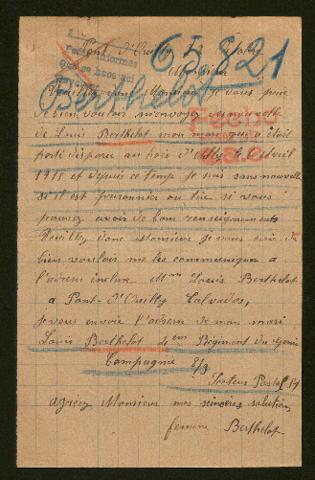 65821
Berthelot
Pont d'Ouilly
Monsieur
je vous prie
de bien vouloir m'envoyer
de Louis Berthelot mon mari qui était
porté disparu au bois d'
1915 et depuis ce temps je suis sans nouvelle
s'il est prisonnier ou tué si vous
pouvez avoir de bon renseignements
Veuillez donc Monsieur je vous prie de
bien vouloir me les communiquer à
l'adresse incluse Mme Louis Berthelot
à Pont-d'Ouilly Calvados,
je vous envoie l'adresse de mon mari
Louis Berthelot Régiment du Génie
Compagnie 8/3
Secteur Postal 84
agréez Monsieur mes sincères salutations
femme Berthelot